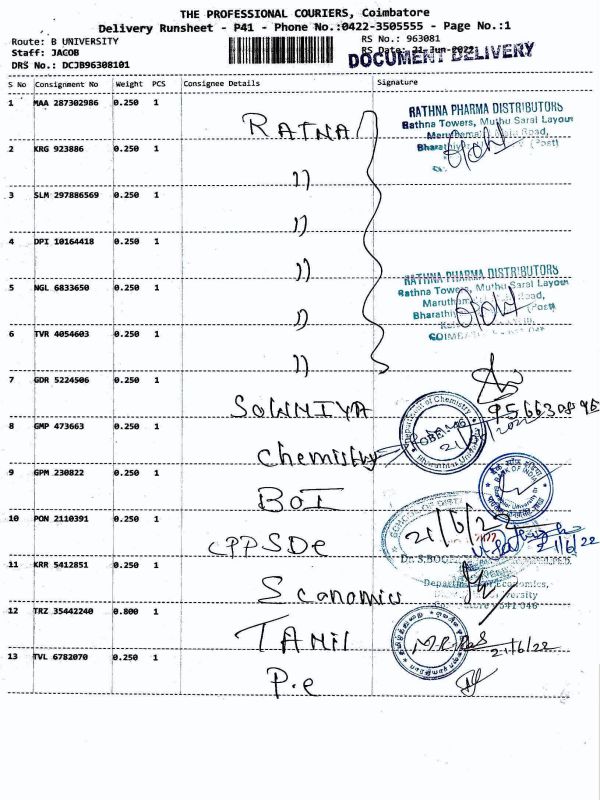 THE PROFESSIONAL COURIERS, Coimbatore
Delivery Runsheet - P41 - Phone No.:0422-3505555 - Page No.:1
Route: B UNIVERSITY
RS No.: 963081
Staff: JACOB
RS Date: 21-Jun-2022
DRS No.: DCJB96308101
DOCUMENT DELIVERY
S No Consignment No Weight PCS Consignee Details Signature
1 MAA 287302986 0.250 1 RATNA
RATHNA PHARMA DISTRIBUTORS
Rathna Towers, Muthu Saral Layout
Road,
(Post)
2 KRG 923886 0.250 1 "
3 SLM 297886569 0.250 1 "
4 DPI 10164418 0.250 1 "
5 NGL 6833650 0.250 1 "
RATHNA PHARMA DISTRIBUTORS
Rathna Towers, Muthu Saral Layout
Road,
(Post)
6 TVR 4054603 0.250 1 "
7 GDR 5224506 0.250 1 SOWMIYA
8 GMP 473663 0.250 1 Chemistry
Department of Chemistry
9 GPM 230822 0.250 1 BOI
BANK OF INDIA
10 PON 2110391 0.250 1 CPPSDE
21/6/22
21/6/22
11 KRR 5412851 0.250 1 Economics
Department of Economics,
641 046
12 TRZ 35442240 0.800 1 TAMIL
21/6/22
13 TVL 6782070 0.250 1 P.e